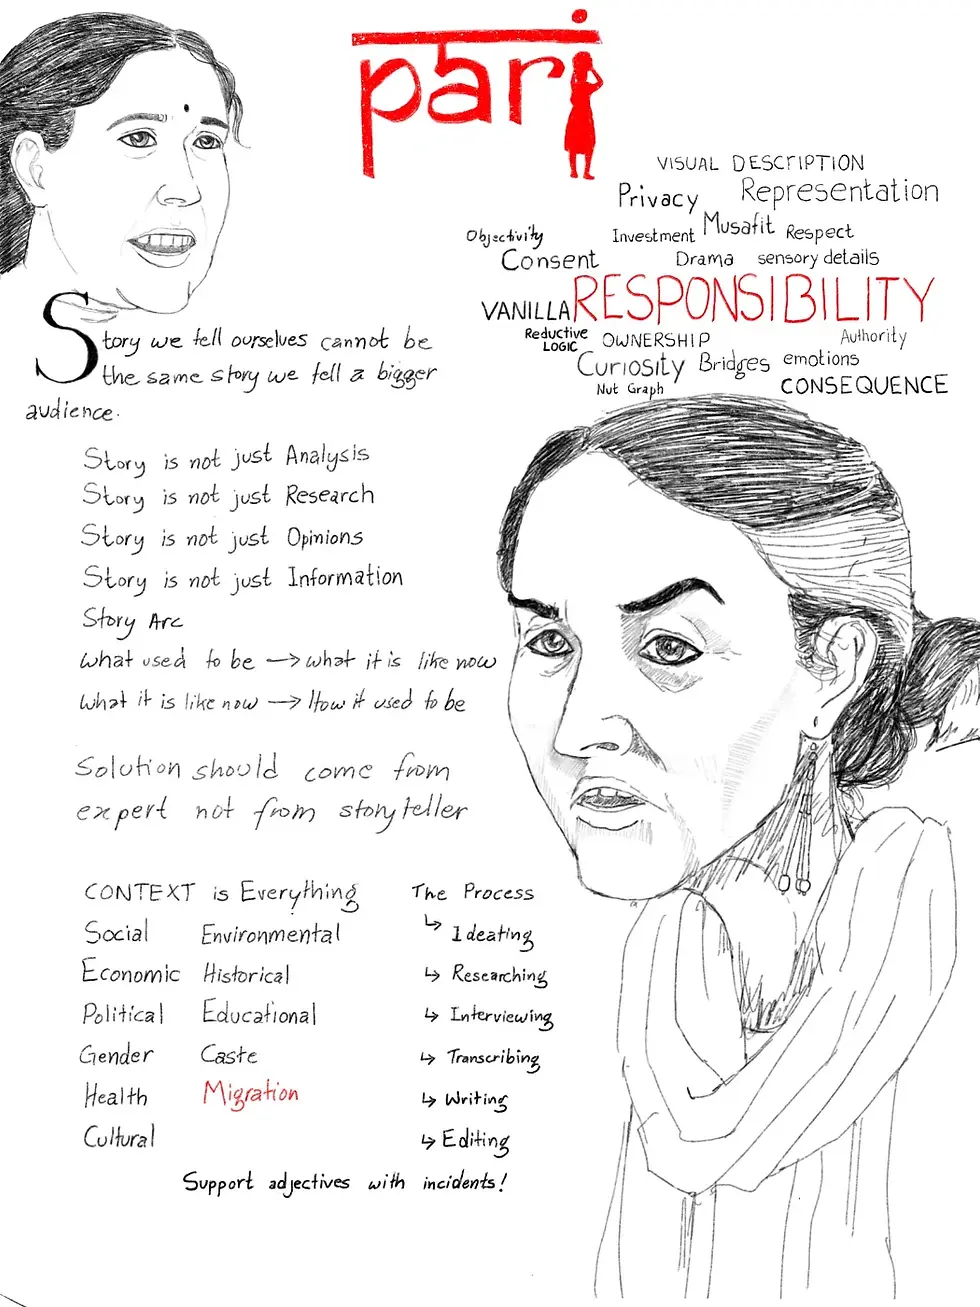 pari
VISUAL DESCRIPTION
Privacy Representation
Objectivity Investment Musafit Respect
Consent Drama sensory details
VANILLA RESPONSIBILITY
Reductive LOGIC OWNERSHIP Authority
Curiosity Bridges emotions
Nut Graph CONSEQUENCE
Story we tell ourselves cannot be
the same story we tell a bigger
audience.
Story is not just Analysis
Story is not just Research
Story is not just Opinions
Story is not just Information
Story Arc
what used to be → what it is like now
what it is like now → How it used to be
Solution should come from
expert not from storyteller
CONTEXT is Everything
Social Environmental
Economic Historical
Political Educational
Gender Caste
Health Migration
Cultural
The Process
↳ Ideating
↳ Researching
↳ Interviewing
↳ Transcribing
↳ Writing
↳ Editing
Support adjectives with incidents!